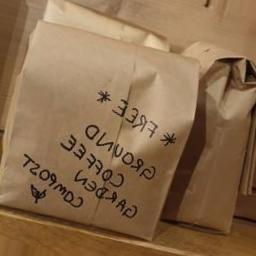 * FREE *
GROUND
COFFEE
GARDEN
COMPOST